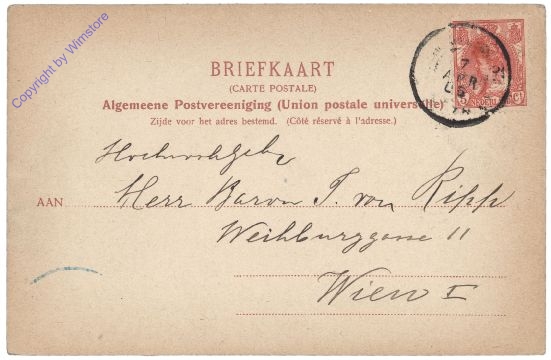 Copyright by Wimstore
BRIEFKAART
(CARTE POSTALE)
Algemeene Postvereeniging (Union postale universelle)
Zijde voor het adres bestemd. (Côté réservé à l'adresse.)
7
APR
05
5 NEDERL Ct
Hochwohlgeb.
AAN
Herr Baron T. von Ripp
Weihburggasse 11
Wien I